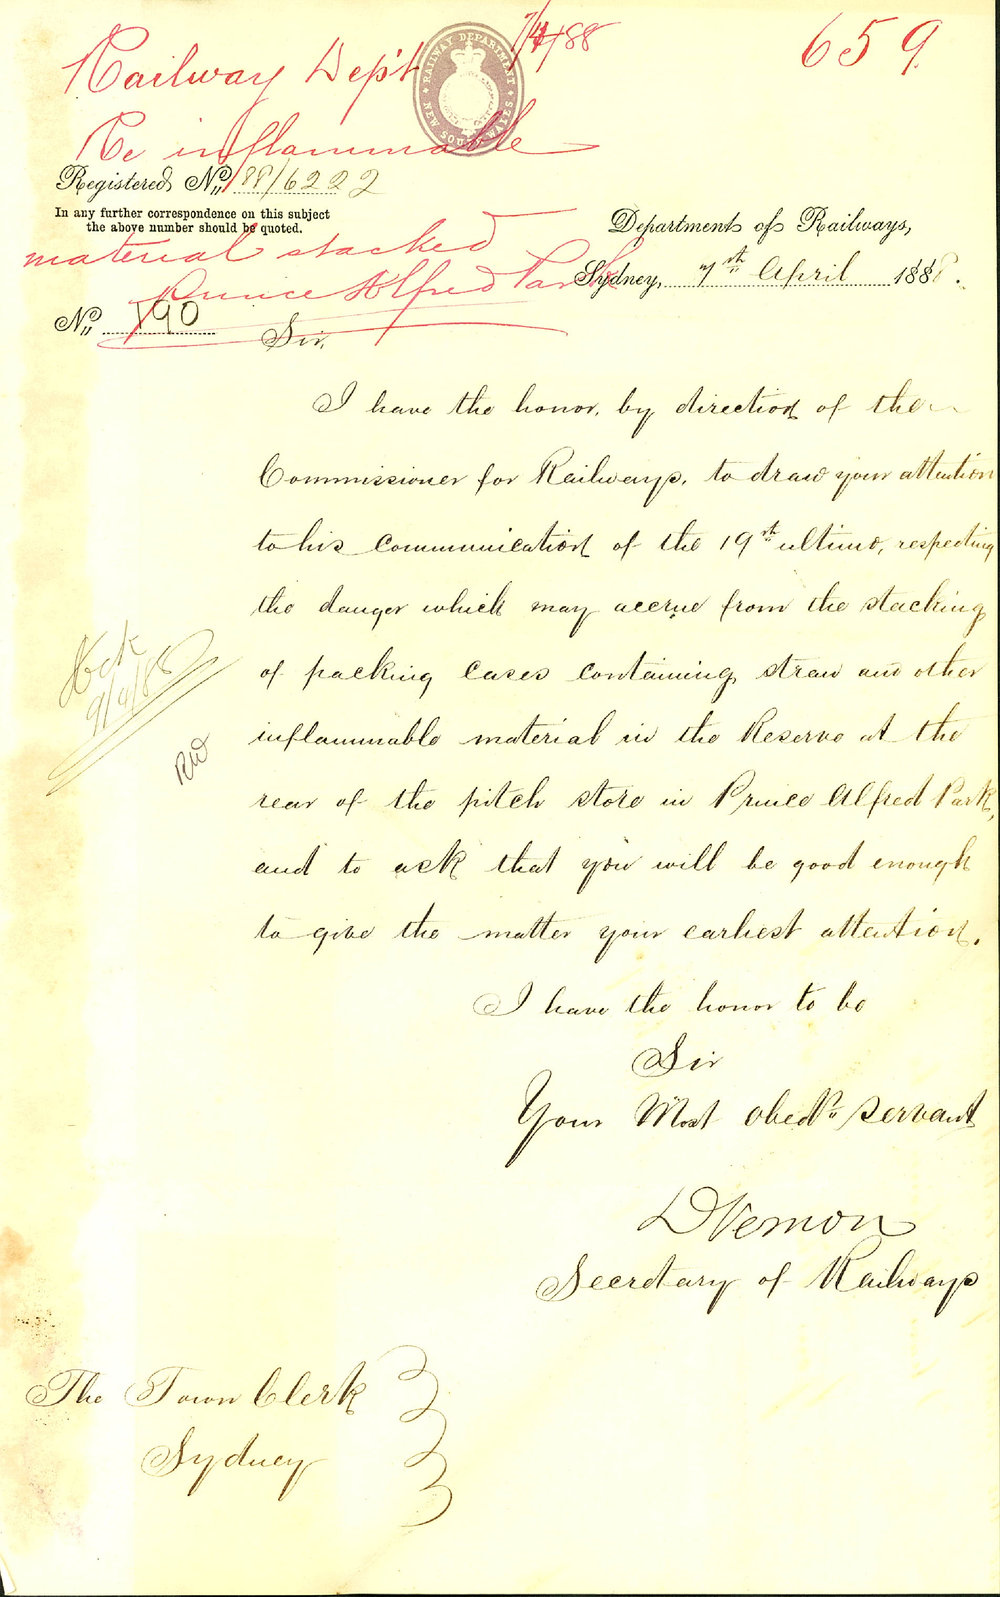 7/4/88
659
Railway Dep't
RAILWAY DEPARTMENT
NEW SOUTH WALES
Re inflammable
Registered No. 88/6222
In any further correspondence on this subject
the above number should be quoted.
material stacked
Prince Alfred Park
Department of Railways,
Sydney, 7th April 1888.
No. 190
Sir,
I have the honor, by direction of the
Commissioner for Railways, to draw your attention
to his communication of the 19th ultimo, respecting
the danger which may accrue from the stacking
of packing cases containing straw and other
inflammable material in the Reserve at the
rear of the pitch store in Prince Alfred Park,
and to ask that you will be good enough
to give the matter your earliest attention.
9/4/88
RW
I have the honor to be
Sir
Your Most obedt. Servant
DVernon
Secretary of Railways
The Town Clerk
Sydney